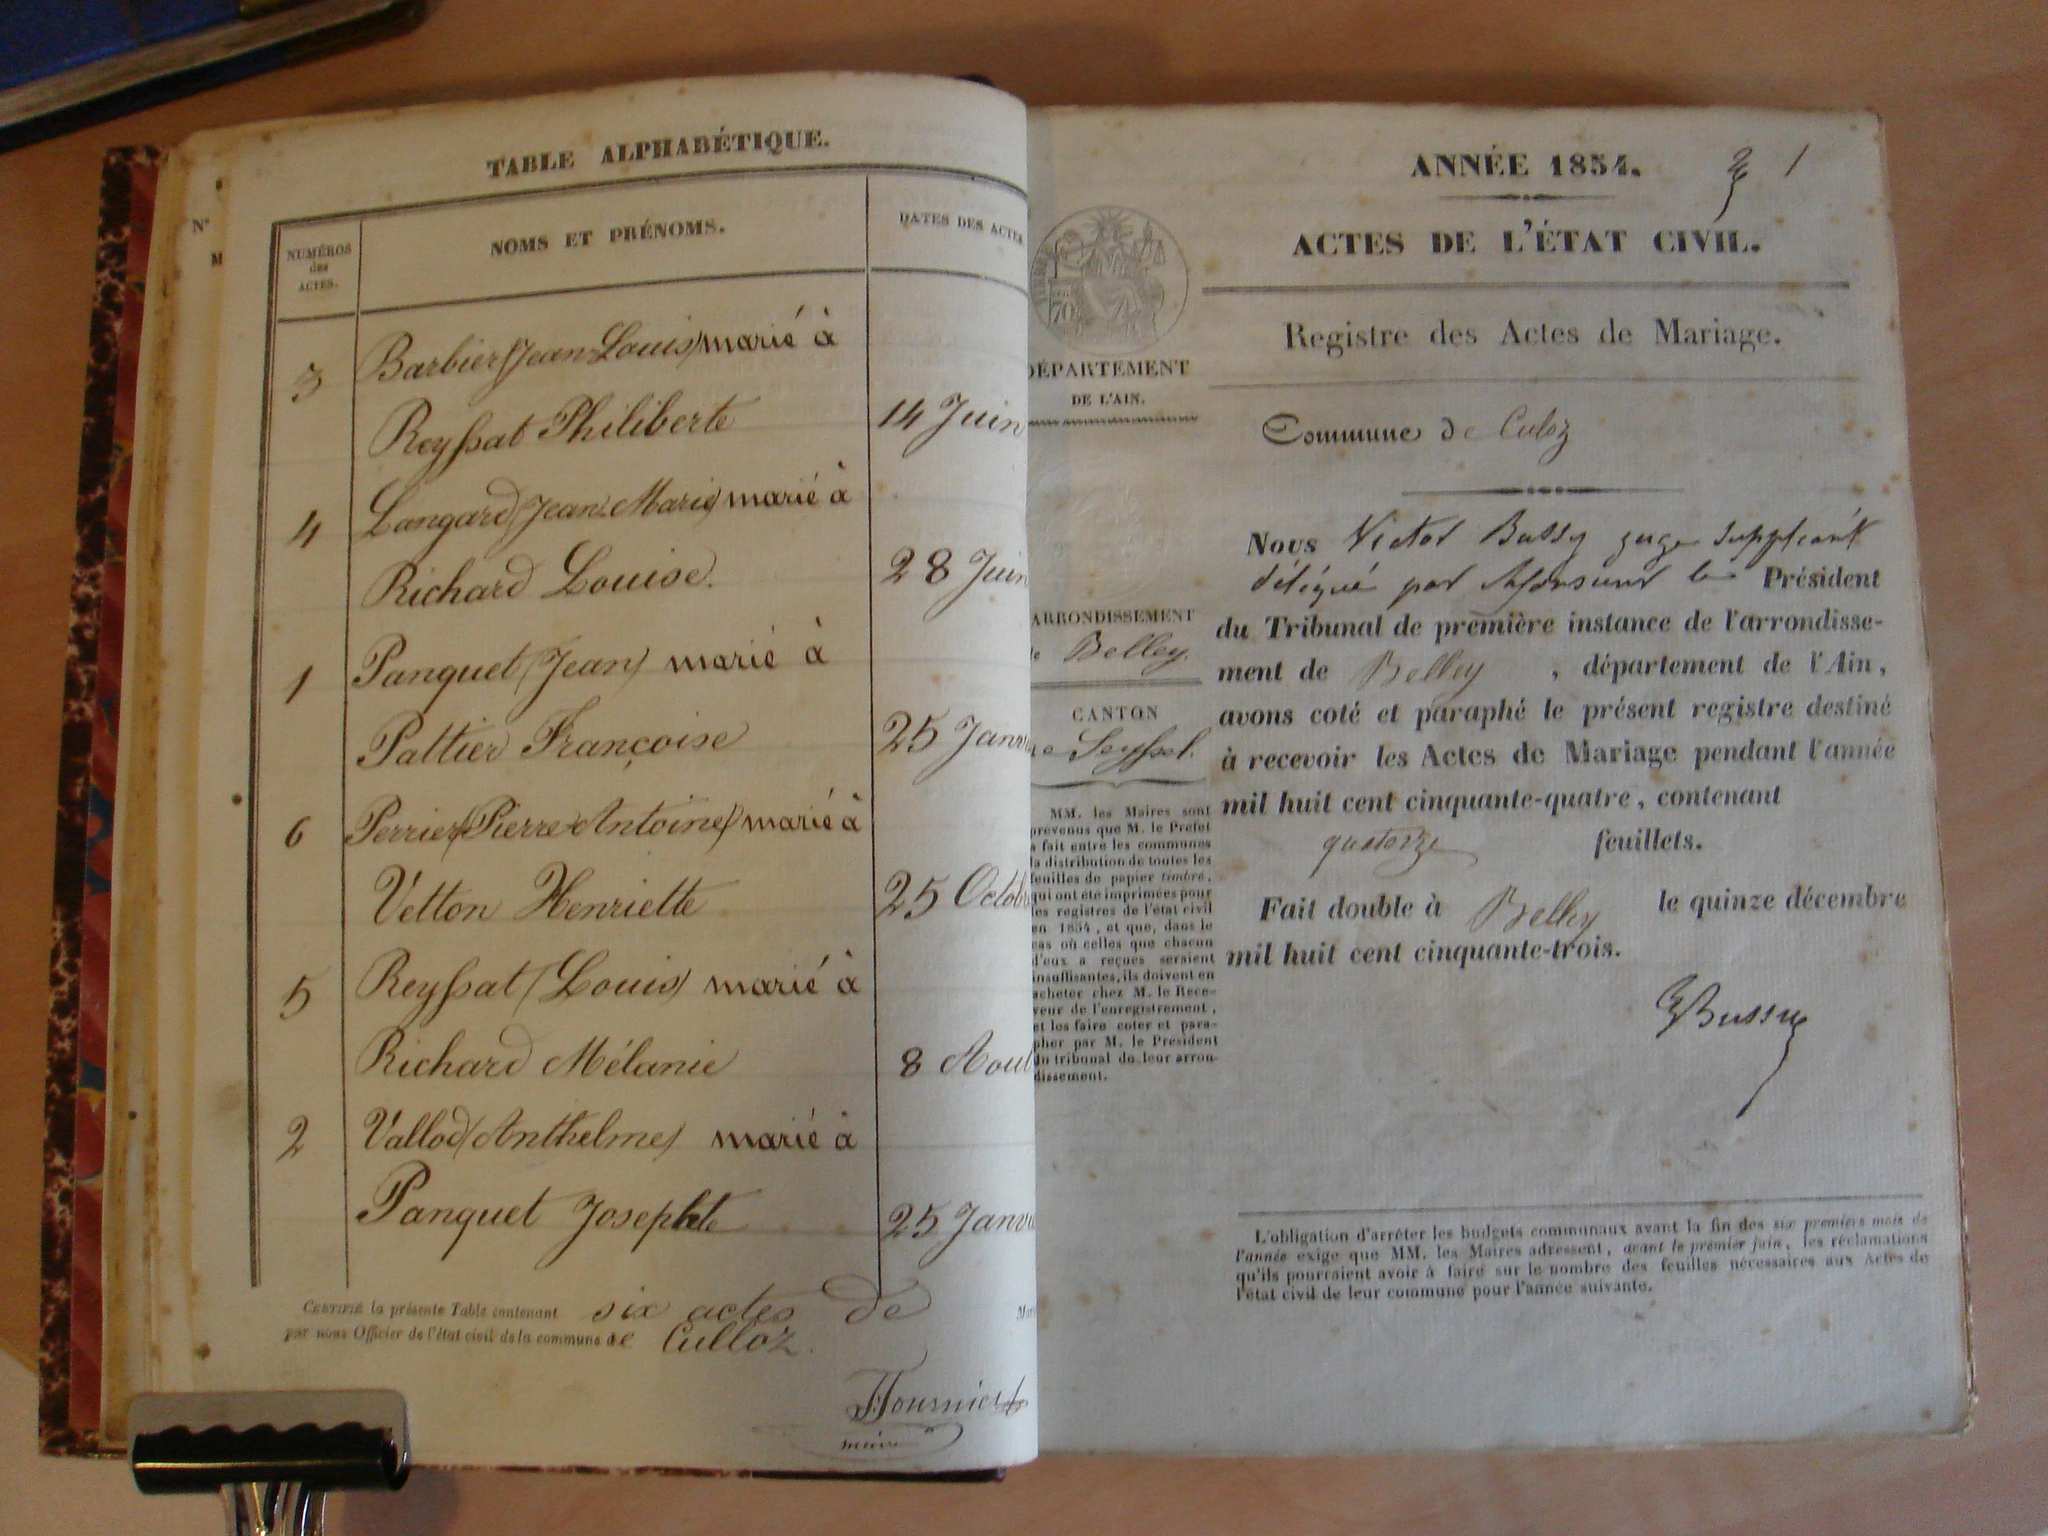 N°
M
TABLE ALPHABÉTIQUE.
NUMÉROS des ACTES.
NOMS ET PRÉNOMS.
DATES DES ACTES
Barbier (Jean Louis) marié à
3
Reyssat Philiberte 14 Juin
Langard (Jean Marie) marié à
4
Richard Louise. 28 Juin
1 Panquet (Jean) marié à
Pattier Françoise 25 Janv
6 Perrier (Pierre Antoine) marié à
Vetton Henriette 25 Octob
5 Reyssat (Louis) marié à
Richard Mélanie 8 Aout
2 Vallod (Anthelme) marié à
Panquet Josephte 25 Janv
CERTIFIÉ la présente Table contenant six actes de
par nous Officier de l'état civil de la commune de Culloz.
Fournier
maire
ANNÉE 1854.
1
ACTES DE L'ÉTAT CIVIL.
Registre des Actes de Mariage.
TIMBRE
70
DÉPARTEMENT
DE L'AIN.
Commune de Culoz
ARRONDISSEMENT
de Belley.
CANTON
de Seyssel.
MM. les Maires sont
prévenus que M. le Préfet
a fait entre les communes
la distribution de toutes les
feuilles de papier timbré,
qui ont été imprimées pour
les registres de l'état civil
en 1854, et que, dans le
cas où celles que chacun
d'eux a reçues seraient
insuffisantes, ils doivent en
acheter chez M. le Rece-
veur de l'enregistrement,
et les faire coter et para-
pher par M. le Président
du tribunal de leur arron-
dissement.
Nous Victor Bussy juge suppléant
délégué par Monsieur le Président
du Tribunal de première instance de l'arrondisse-
ment de Belley, département de l'Ain,
avons coté et paraphé le présent registre destiné
à recevoir les Actes de Mariage pendant l'année
mil huit cent cinquante-quatre, contenant
quatorze feuillets.
Fait double à Belley le quinze décembre
mil huit cent cinquante-trois.
Bussy
L'obligation d'arrêter les budgets communaux avant la fin des six premiers mois de
l'année exige que MM. les Maires adressent, avant le premier juin, les réclamations
qu'ils pourraient avoir à faire sur le nombre des feuilles nécessaires aux Actes de
l'état civil de leur commune pour l'année suivante.